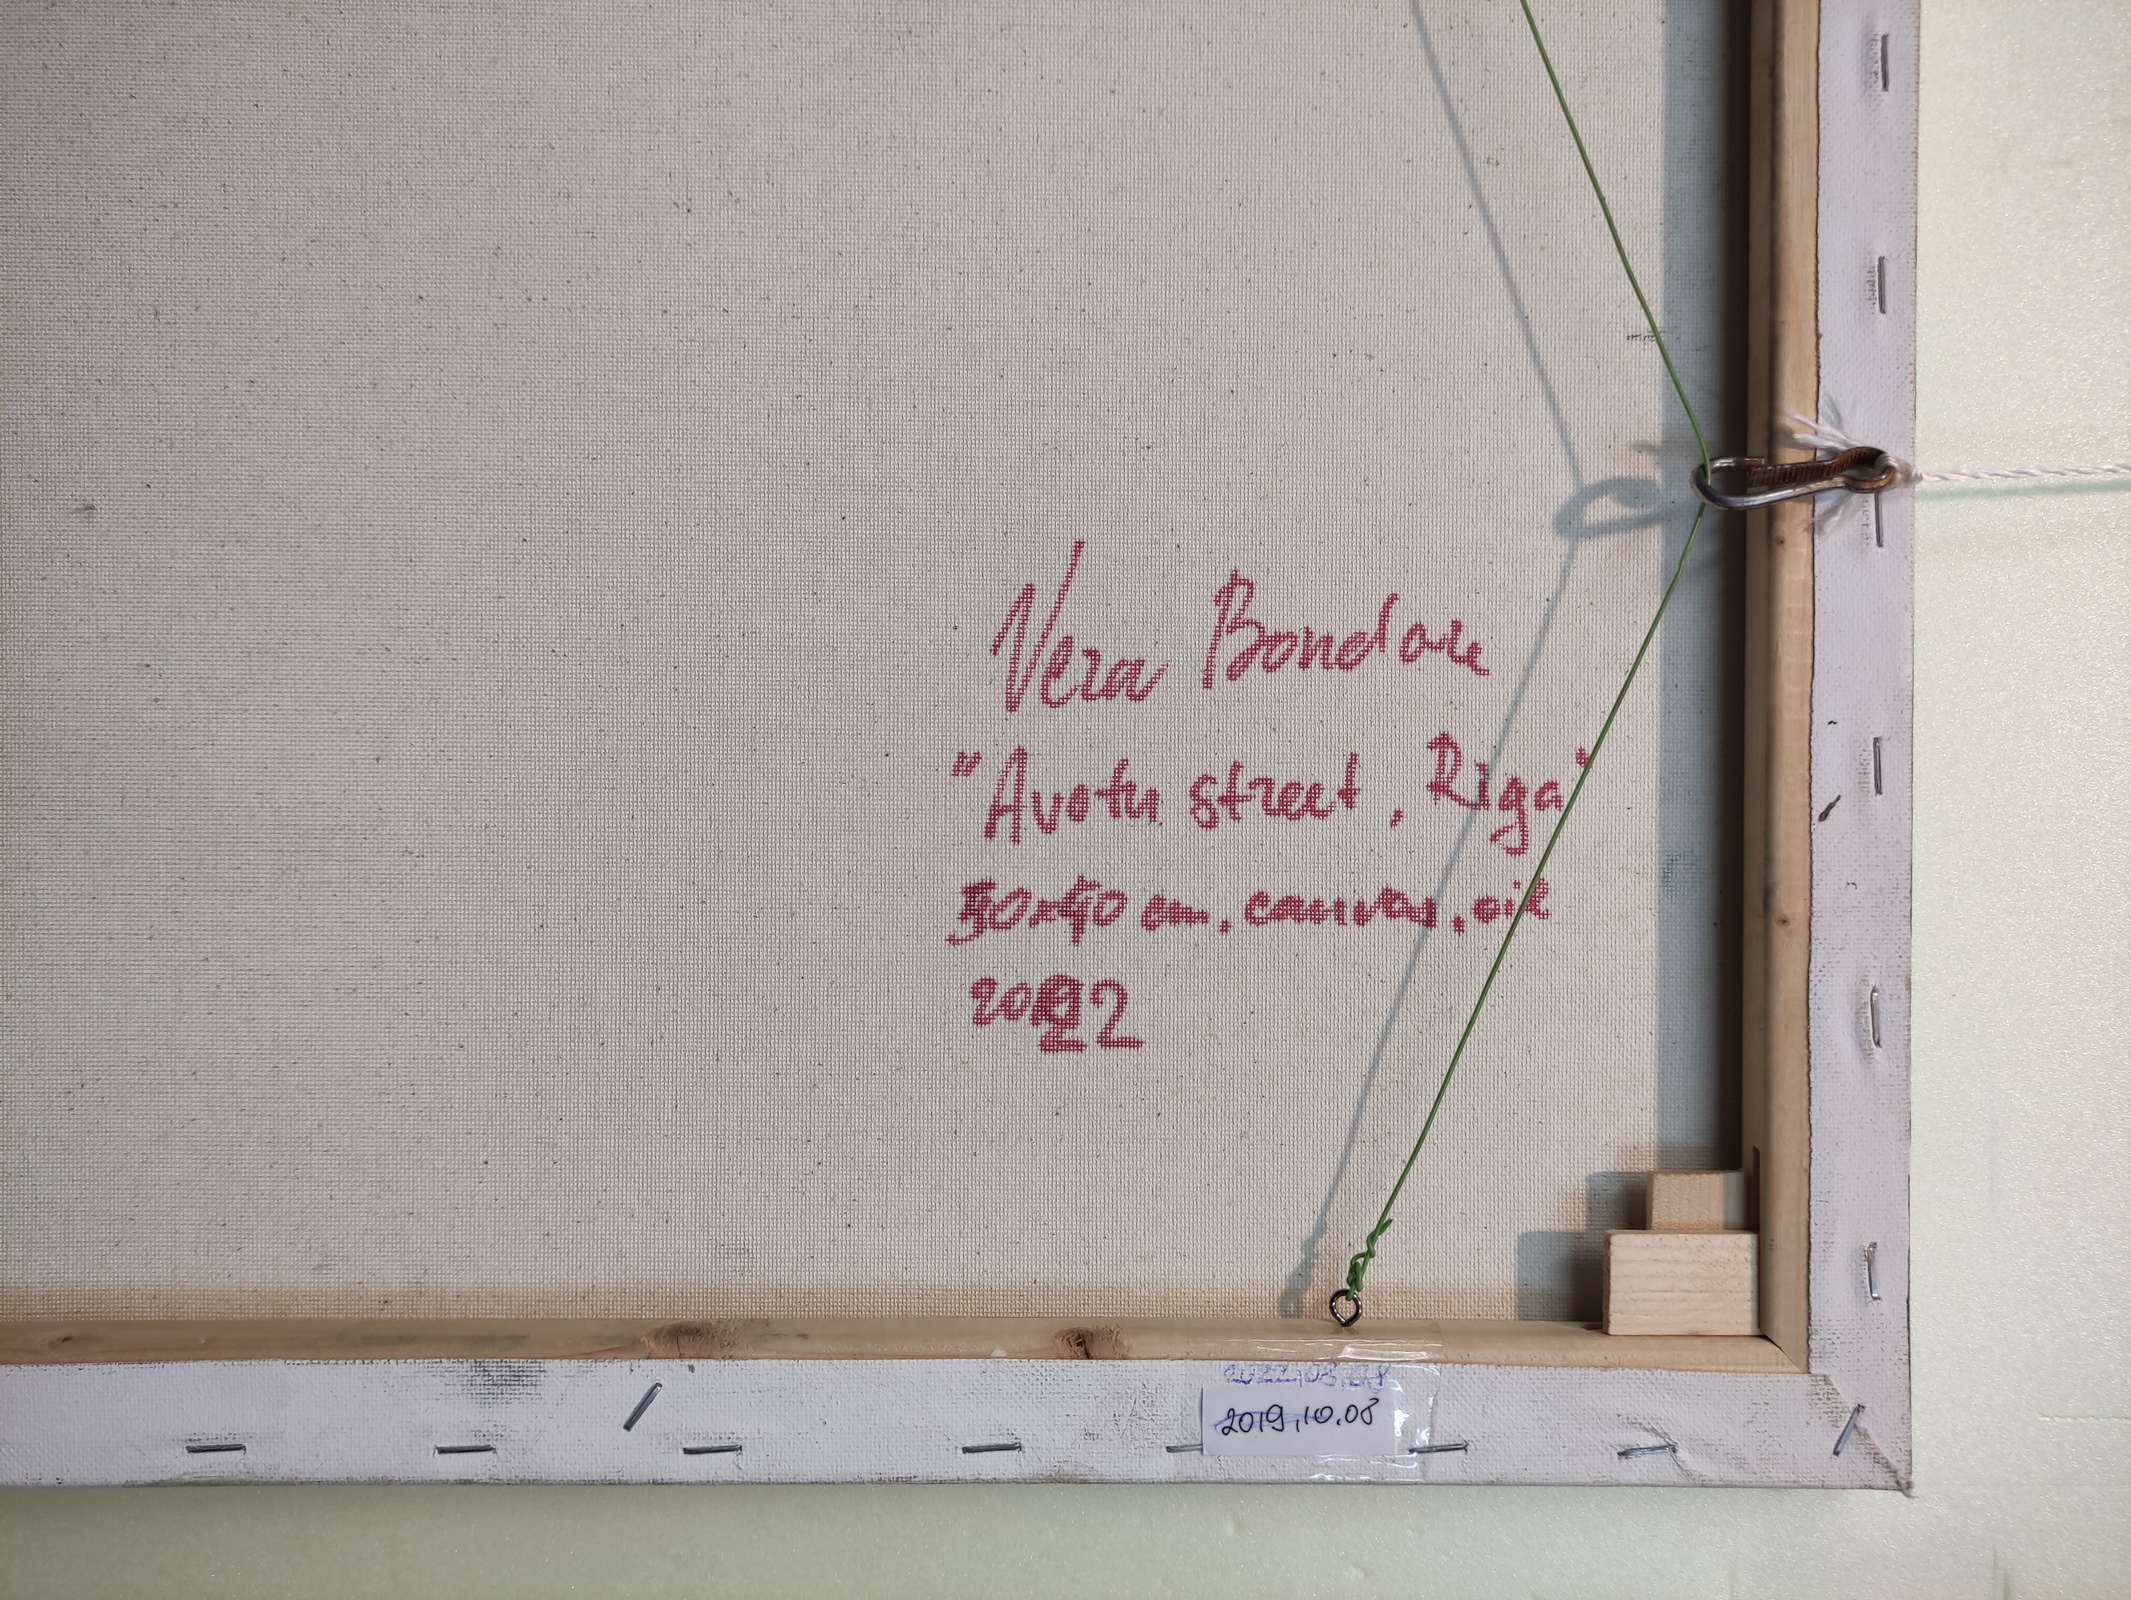 Vera Bondare
"Avotu street, Riga"
50x40 cm. canvas, oil
2022
2019.10.08